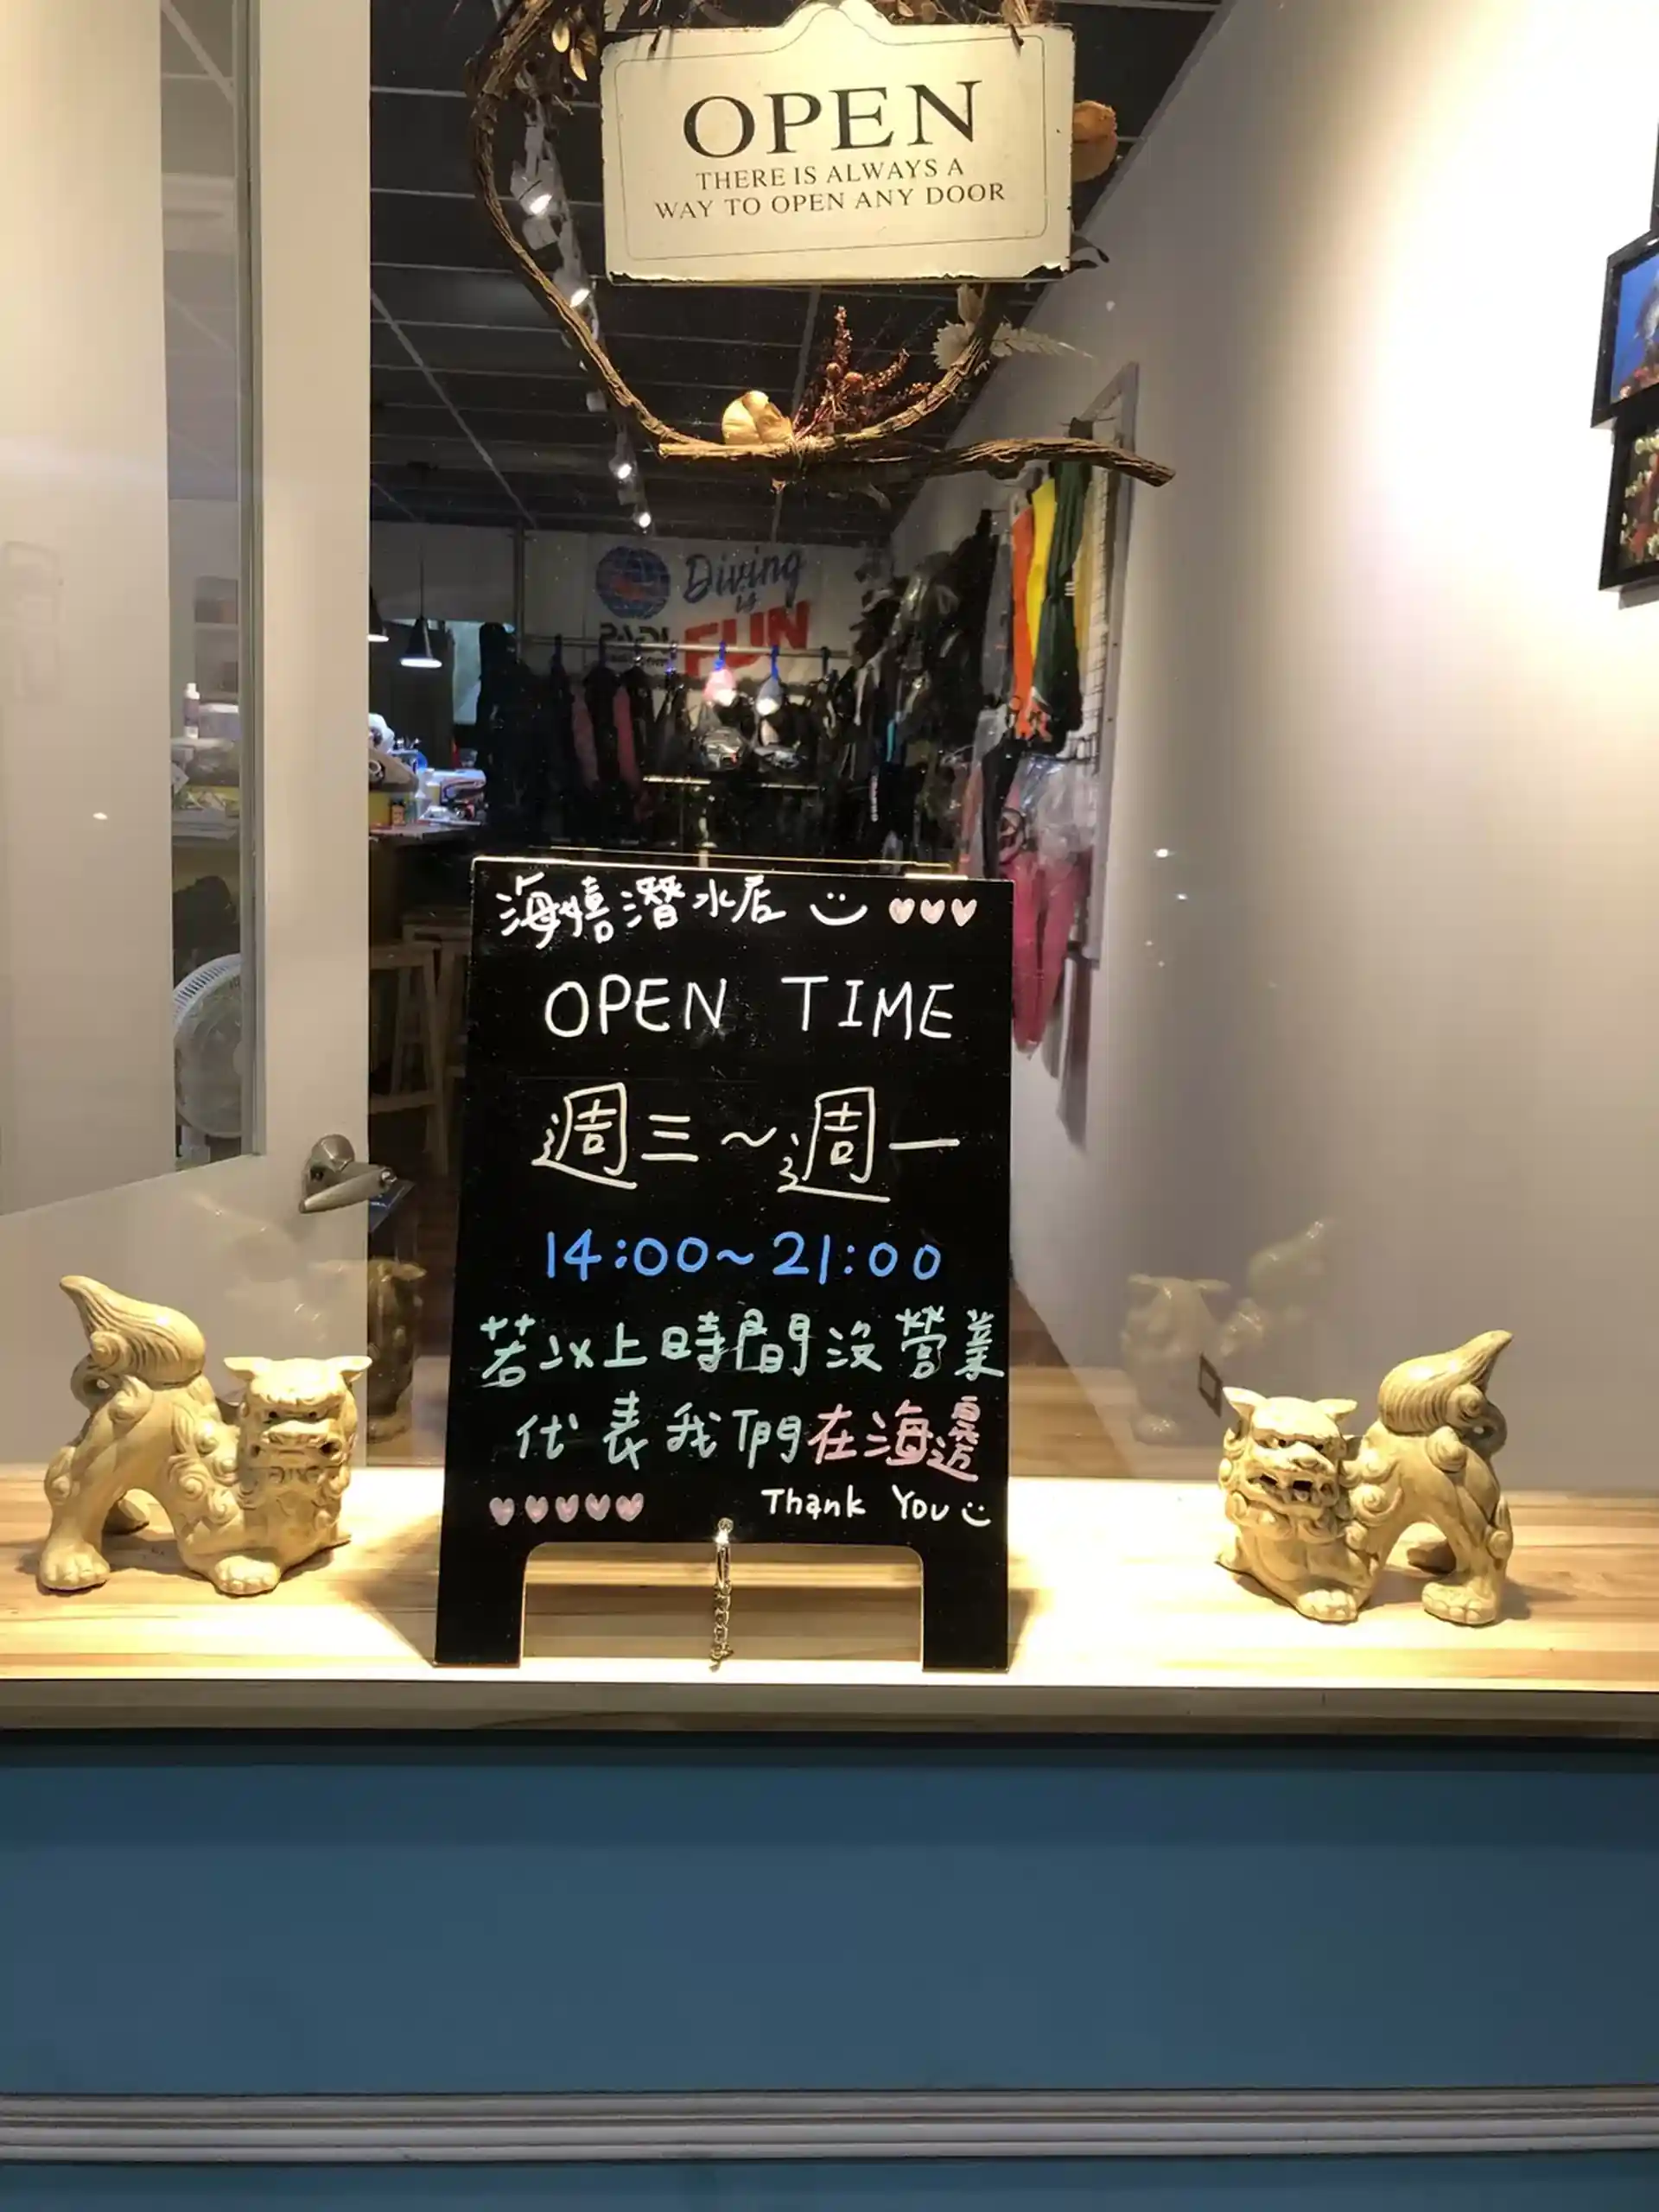 OPEN
THERE IS ALWAYS A
WAY TO OPEN ANY DOOR
Diving
is
FUN
海嬉潛水店
OPEN TIME
週三～週一
14:00～21:00
若以上時間沒營業
代表我們在海邊
Thank You